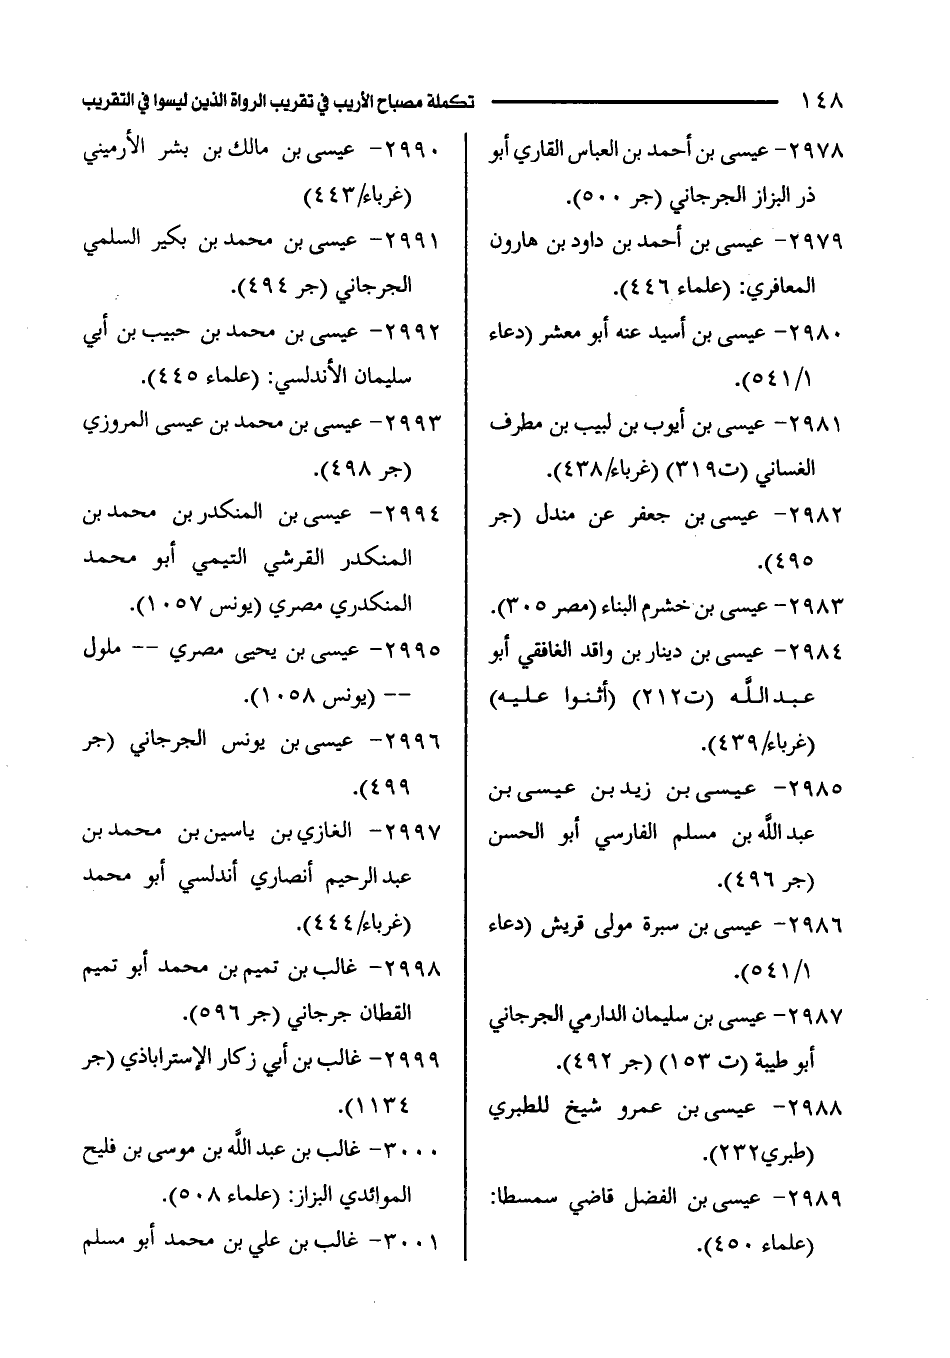 ١٤٨ تكملة مصباح الأريب في تقريب الرواة الذين ليسوا في التقريب
٢٩٧٨- عيسى بن أحمد بن العباس القاري أبو
ذر البزاز الجرجاني (جر ٥٠٠).
٢٩٧٩- عيسى بن أحمد بن داود بن هارون
المعافري: (علماء ٤٤٦).
٢٩٨٠- عيسى بن أسيد عنه أبو معشر (دعاء
٥٤١/١).
٢٩٨١- عيسى بن أيوب بن لبيب بن مطرف
الغساني (ت٣١٩) (غرباء/٤٣٨).
٢٩٨٢- عيسى بن جعفر عن مندل (جر
٤٩٥).
٢٩٨٣- عيسى بن خشرم البناء (مصر ٣٠٥).
٢٩٨٤- عيسى بن دينار بن واقد الغافقي أبو
عبد اللَّه (ت٢١٢) (أثنوا عليه)
(غرباء/٤٣٩).
٢٩٨٥- عيسى بن زيد بن عيسى بن
عبد اللَّه بن مسلم الفارسي أبو الحسن
(جر ٤٩٦).
٢٩٨٦- عيسى بن سبرة مولى قريش (دعاء
٥٤١/١).
٢٩٨٧- عيسى بن سليمان الدارمي الجرجاني
أبو طيبة (ت ١٥٣) (جر ٤٩٢).
٢٩٨٨- عيسى بن عمرو شيخ للطبري
(طبري٢٣٢).
٢٩٨٩- عيسى بن الفضل قاضي سمسطا:
(علماء ٤٥٠).
٢٩٩٠- عيسى بن مالك بن بشر الأرميني
(غرباء/٤٤٣)
٢٩٩١- عيسى بن محمد بن بكير السلمي
الجرجاني (جر ٤٩٤).
٢٩٩٢- عيسى بن محمد بن حبيب بن أبي
سليمان الأندلسي: (علماء ٤٤٥).
٢٩٩٣- عيسى بن محمد بن عيسى المروزي
(جر ٤٩٨).
٢٩٩٤- عيسى بن المنكدر بن محمد بن
المنكدر القرشي التيمي أبو محمد
المنكدري مصري (يونس ١٠٥٧).
٢٩٩٥- عيسى بن يحيى مصري -- ملول
-- (يونس ١٠٥٨).
٢٩٩٦- عيسى بن يونس الجرجاني (جر
٤٩٩).
٢٩٩٧- الغازي بن ياسين بن محمد بن
عبد الرحيم أنصاري أندلسي أبو محمد
(غرباء/٤٤٤).
٢٩٩٨- غالب بن تميم بن محمد أبو تميم
القطان جرجاني (جر ٥٩٦).
٢٩٩٩- غالب بن أبي زكار الإستراباذي (جر
١١٣٤).
٣٠٠٠- غالب بن عبد اللَّه بن موسى بن فليح
الموائدي البزاز: (علماء ٥٠٨).
٣٠٠١- غالب بن علي بن محمد أبو مسلم